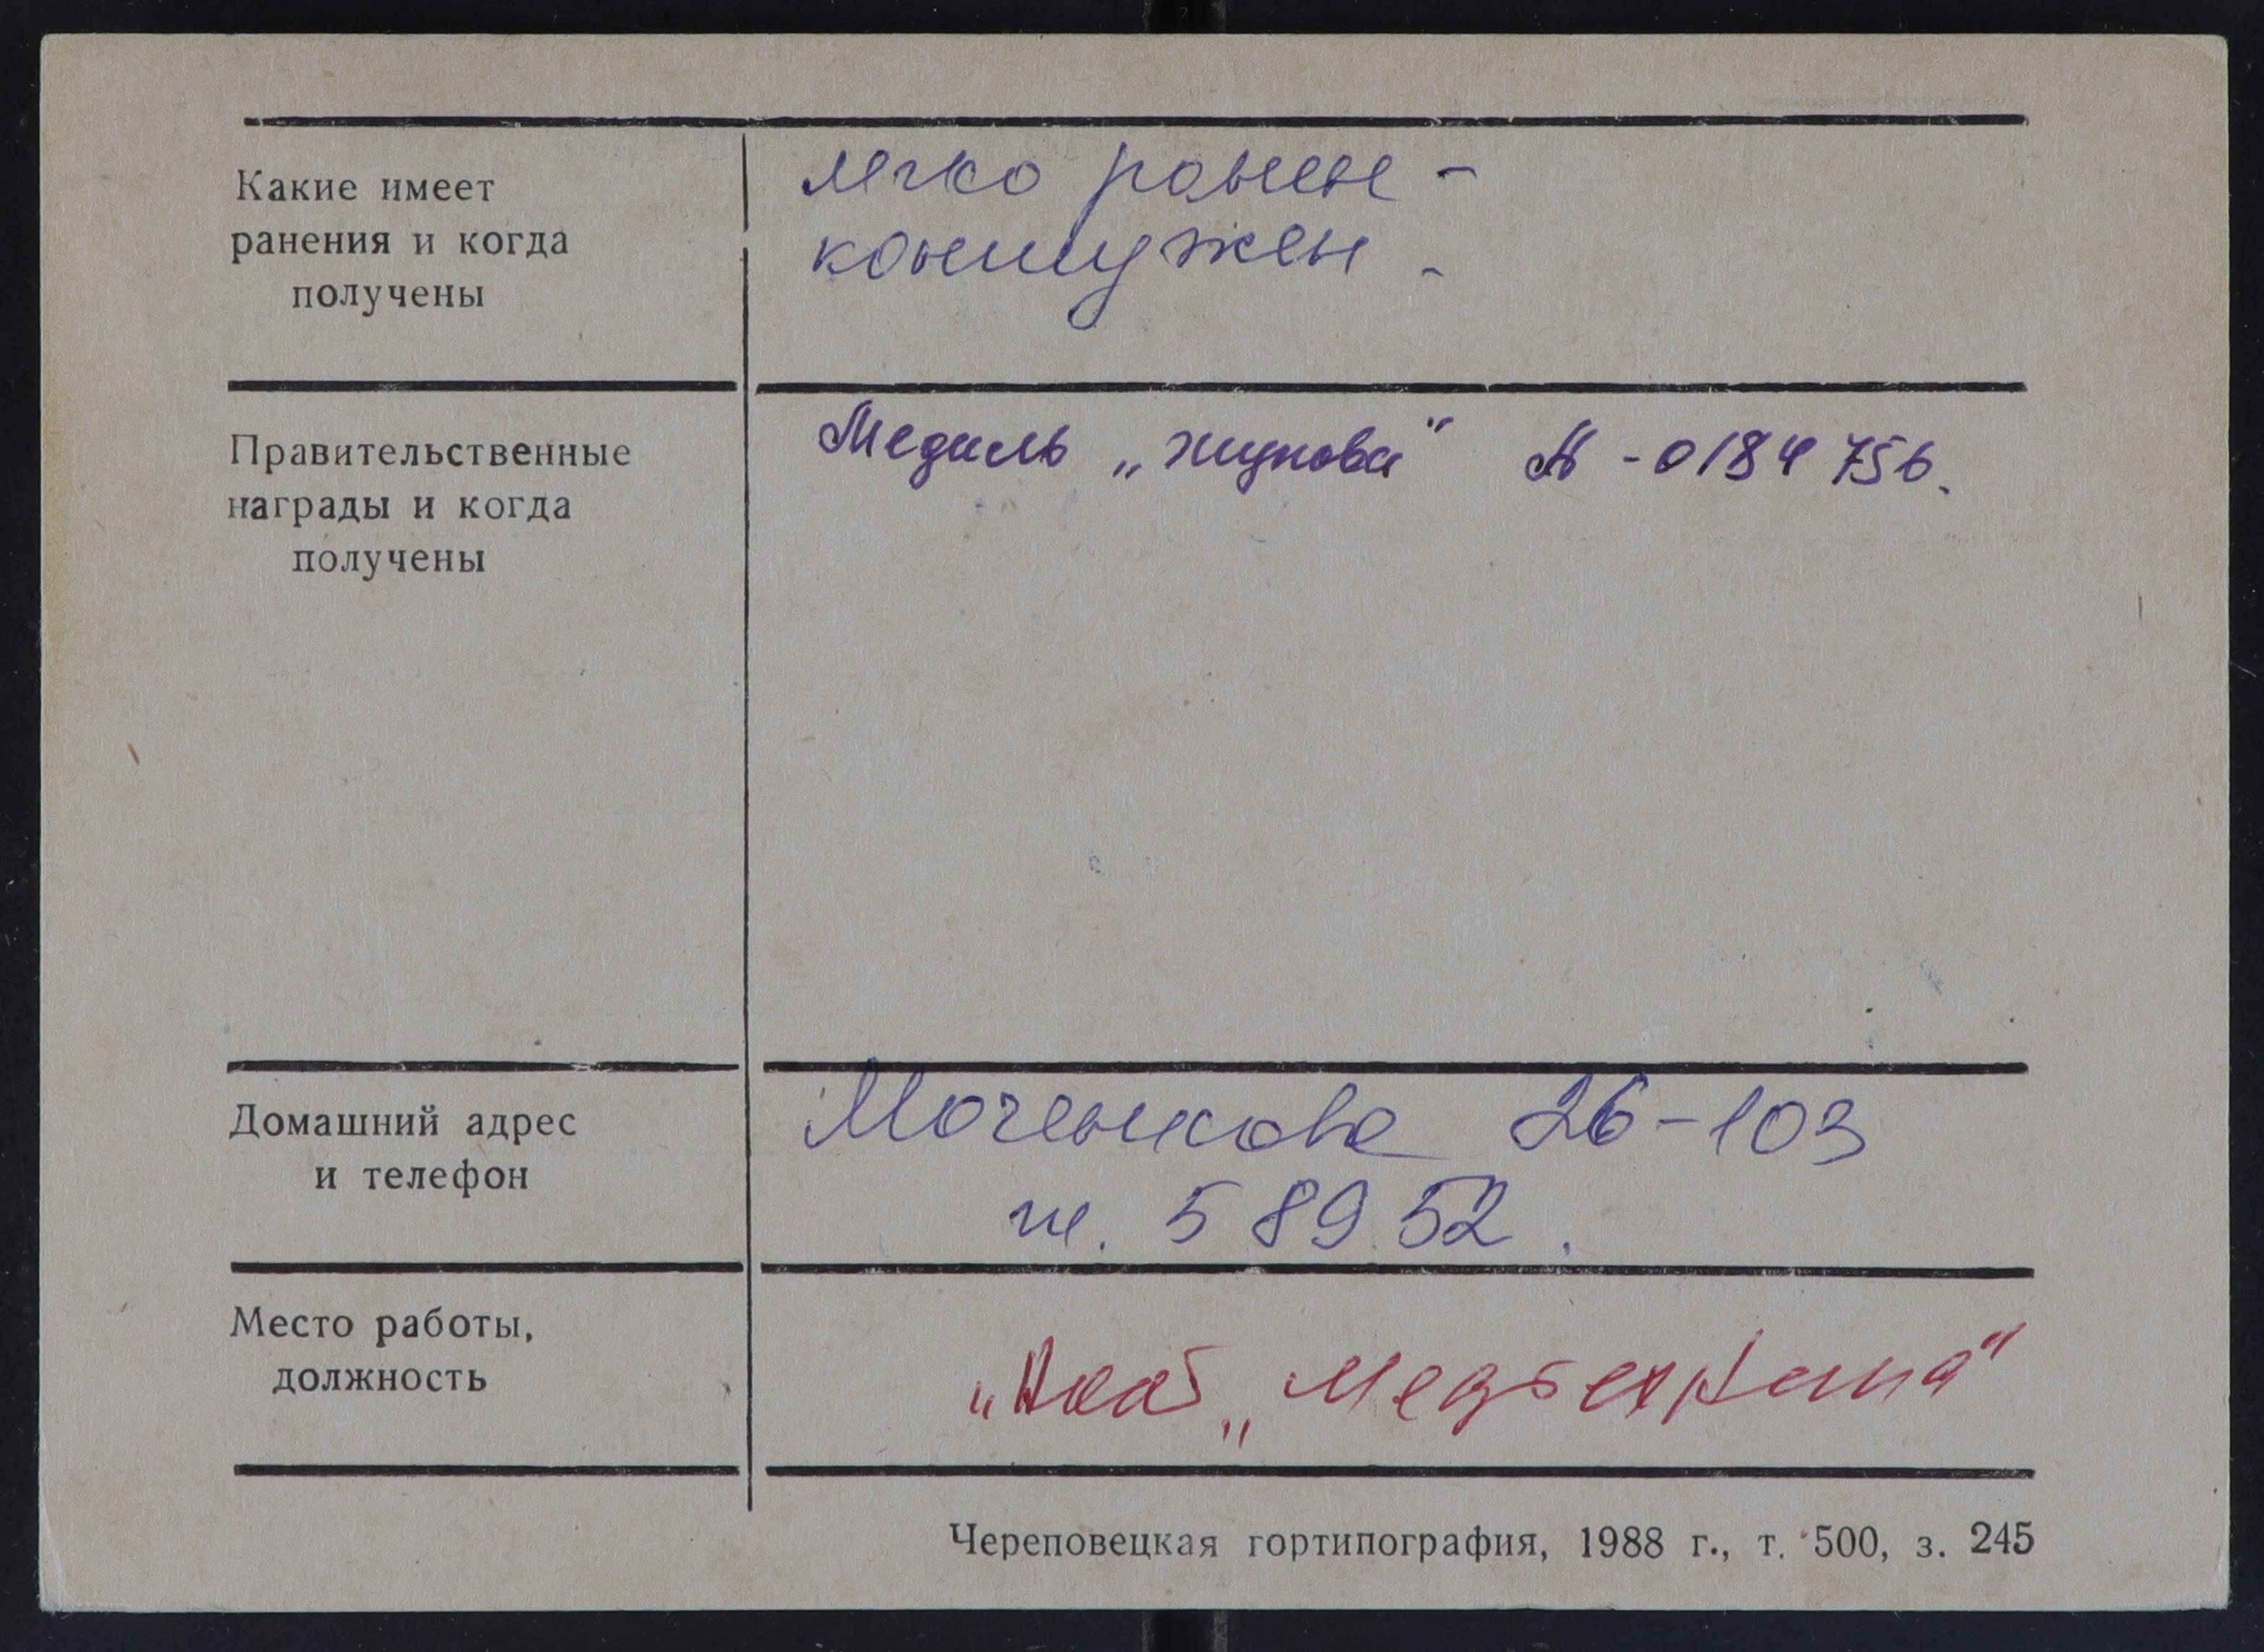 Какие имеет
ранения и когда
получены
легко ранен -
контужен.
Правительственные
награды и когда
получены
Медаль „Жукова" А - 0184756.
Домашний адрес
и телефон
Моченкова 26-103
т. 5 89 52.
Место работы,
должность
„Медтехника"
Череповецкая гортипография, 1988 г., т. 500, з. 245